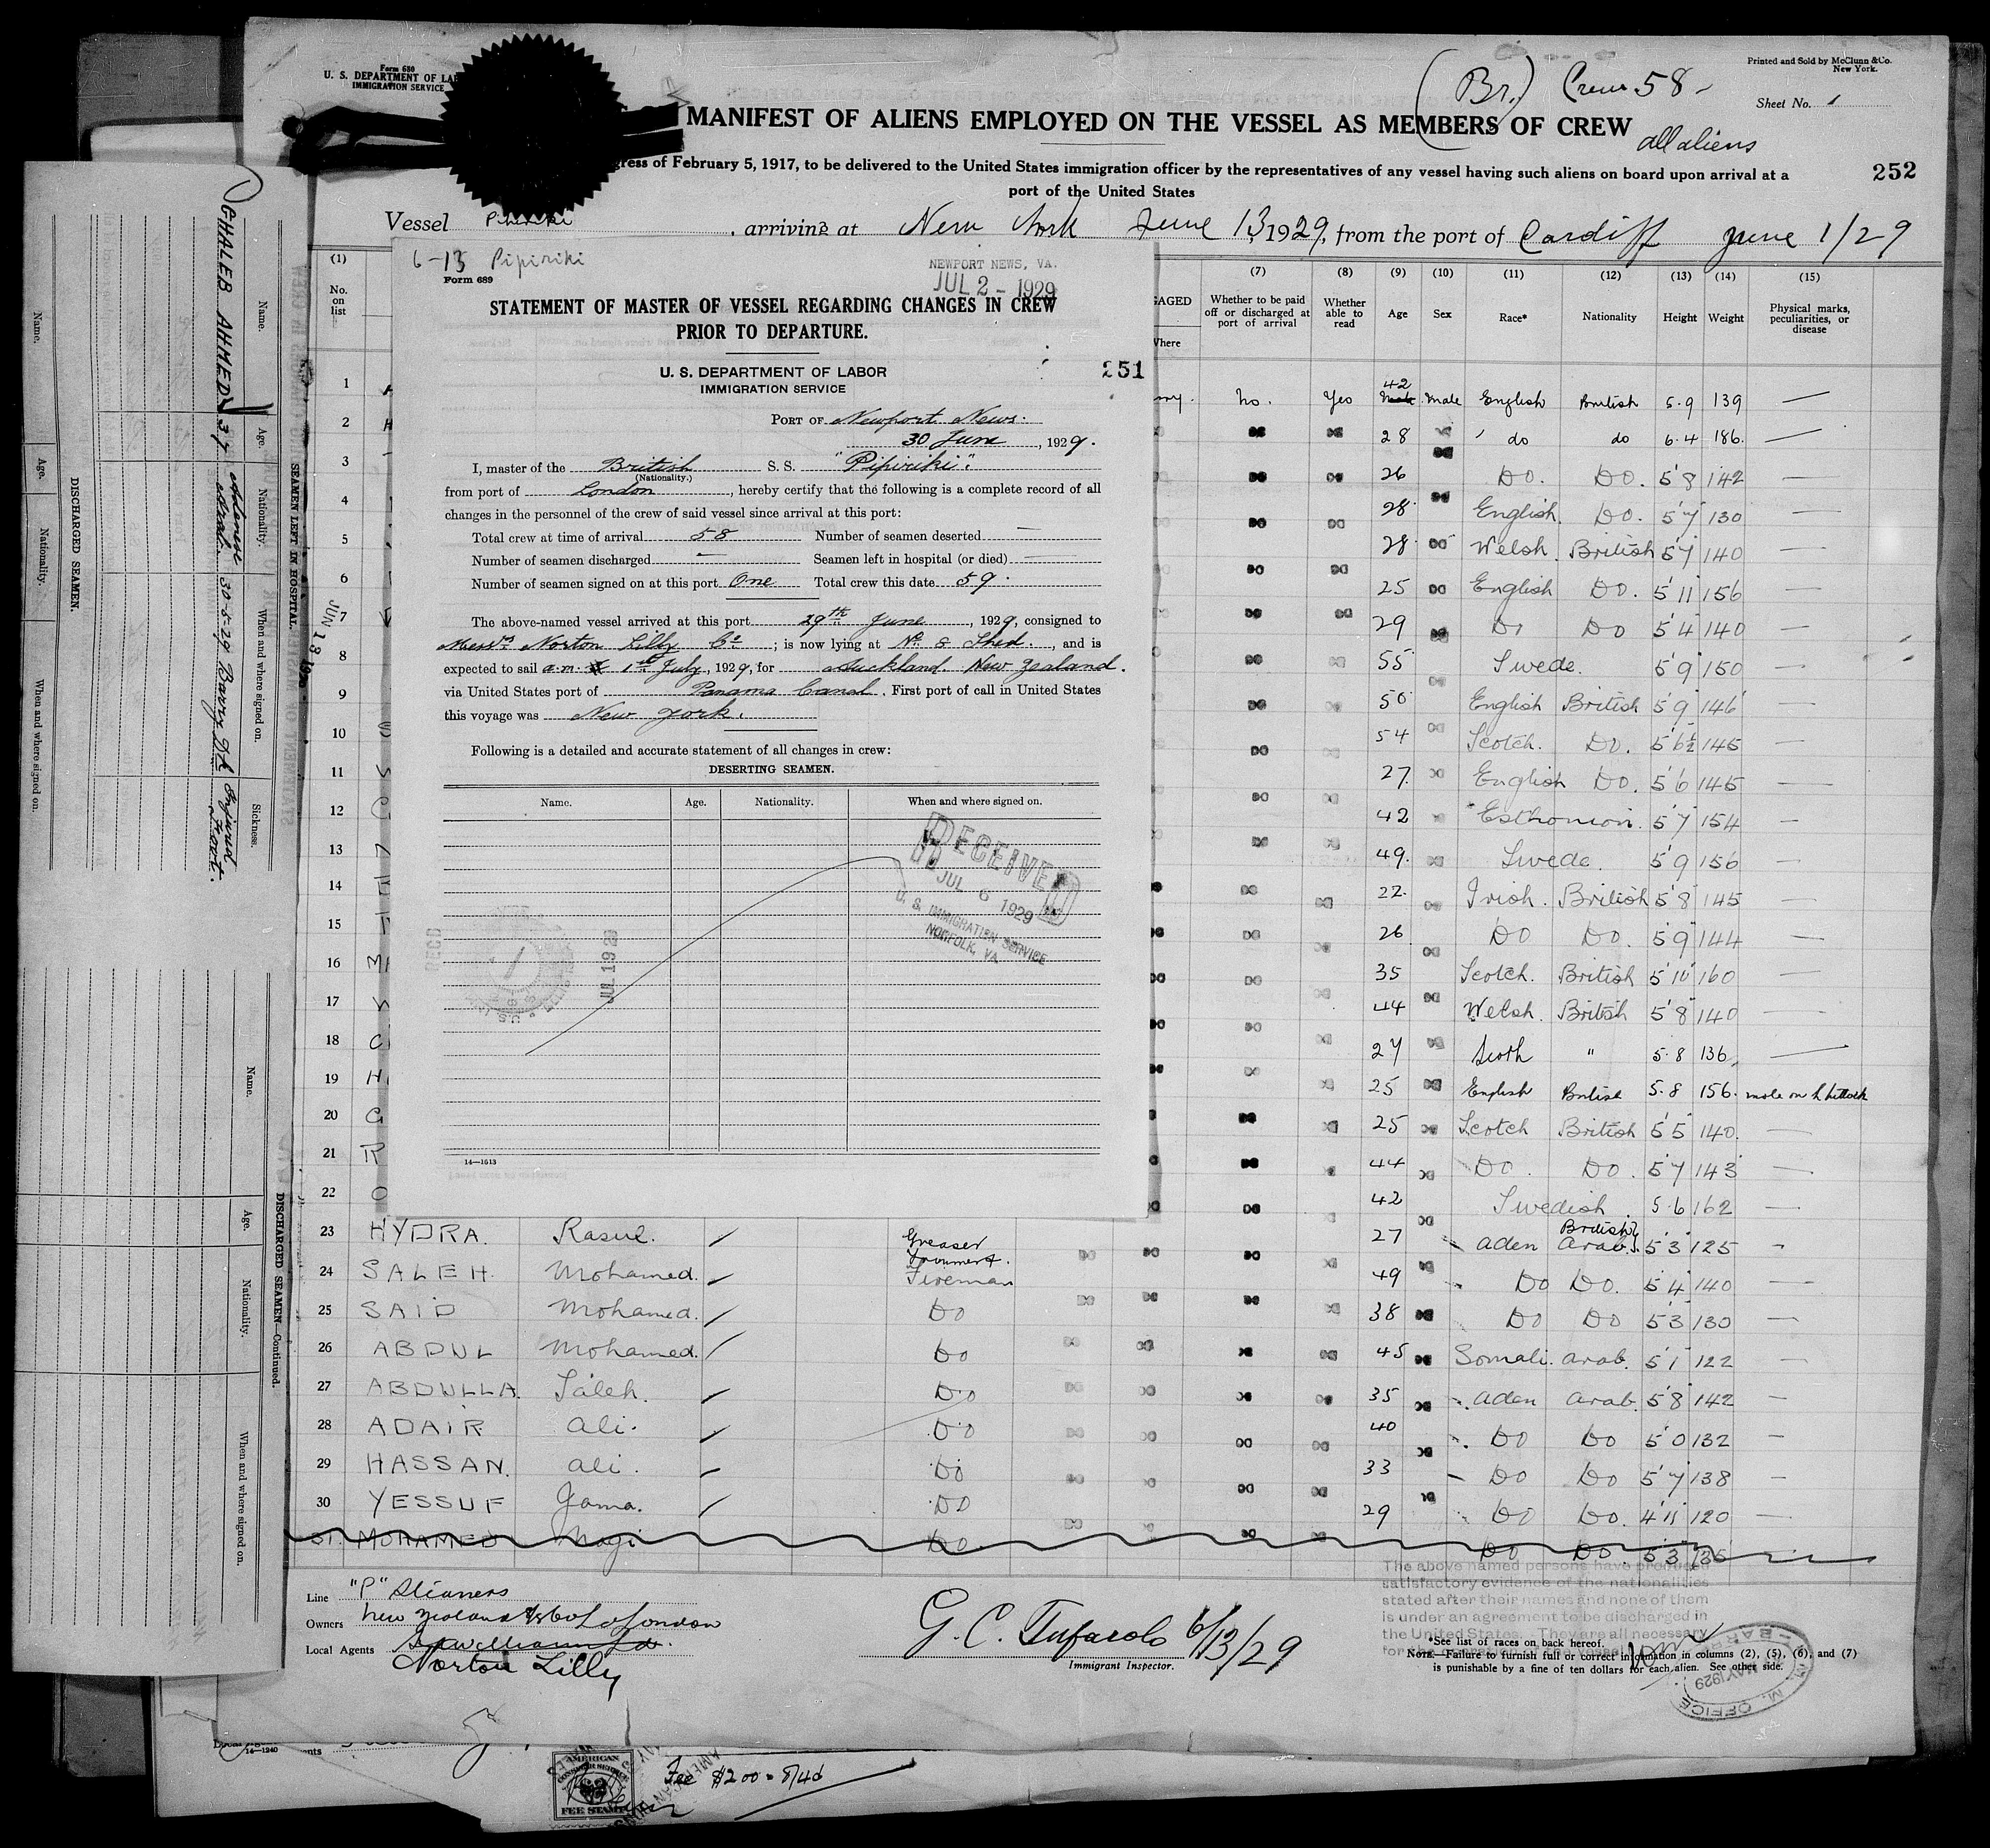 Form 680
U. S. DEPARTMENT OF LA
IMMIGRATION SERVICE
(Br.) Crew 58
Printed and Sold by McClunn & Co.
New York.
Sheet No. 1
MANIFEST OF ALIENS EMPLOYED ON THE VESSEL AS MEMBERS OF CREW
all aliens
gress of February 5, 1917, to be delivered to the United States immigration officer by the representatives of any vessel having such aliens on board upon arrival at a
port of the United States
252
Vessel Pipiriki, arriving at New York June 13, 1929, from the port of Cardiff June 1/29
(1) (7) (8) (9) (10) (11) (12) (13) (14) (15)
No. on list
GAGED
Where
Whether to be paid off or discharged at port of arrival
Whether able to read
Age
Sex
Race*
Nationality
Height
Weight
Physical marks, peculiarities, or disease
6-13 Pipiriki
Form 689
NEWPORT NEWS, VA.
JUL 2 - 1929
STATEMENT OF MASTER OF VESSEL REGARDING CHANGES IN CREW
PRIOR TO DEPARTURE.
U. S. DEPARTMENT OF LABOR
IMMIGRATION SERVICE
251
PORT OF Newport News.
30 June, 1929.
I, master of the British S. S. "Pipiriki".
(Nationality.)
from port of London, hereby certify that the following is a complete record of all
changes in the personnel of the crew of said vessel since arrival at this port:
Total crew at time of arrival 58 Number of seamen deserted —
Number of seamen discharged — Seamen left in hospital (or died) —
Number of seamen signed on at this port One Total crew this date 59.
The above-named vessel arrived at this port 29th June, 1929, consigned to
Messrs Norton Lilly Co; is now lying at No 8 Shed., and is
expected to sail a.m. 1st July, 1929, for Auckland. New Zealand.
via United States port of Panama Canal. First port of call in United States
this voyage was New York.
Following is a detailed and accurate statement of all changes in crew:
DESERTING SEAMEN.
Name. Age. Nationality. When and where signed on.
RECEIVED
JUL 6 1929
U. S. IMMIGRATION SERVICE
NORFOLK, VA.
REC'D
JUL 19 29
14—1613
1 No. Yes 42 Male English British 5.9 139 —
2 28 do do 6.4 186. —
3 26 Do. Do. 5'8 142 —
4 28 English. Do. 5'7 130 —
5 28 Welsh. British 5'7 140 —
6 25 English Do. 5'11 156
7 29 Do Do 5'4 140 —
8 55 Swede. 5'9 150
9 50 English British 5'9 146
10 54 Scotch. Do. 5'6½ 145 —
11 27. English Do. 5'6 145 —
12 42 Esthonian. 5'7 154 —
13 49. Swede. 5'9 156 —
14 22. Irish. British 5'8 145 —
15 26 Do Do. 5'9 144 —
16 35 Scotch. British 5'10 160 —
17 44 Welsh. British 5'8 140 —
18 27 Scoth " 5.8 136 —
19 25 English British 5.8 156.
20 25 Scotch British 5'5 140. —
21 44 Do. Do. 5'7 143 —
22 42 Swedish 5.6 162 —
23 HYDRA. Rasul. Greaser 27 Aden British Arab. 5'3 125
24 SALEH Mohamed. Fireman 49 Do Do. 5'4 140 —
25 SAID Mohamed. Do 38 Do Do 5'3 130 —
26 ABDUL Mohamed. Do 45 Somali. Arab. 5'1 122 —
27 ABDULLA. Saleh. Do 35 Aden Arab. 5'8 142 —
28 ADAIR Ali. Do 40 Do Do 5'0 132 —
29 HASSAN. Ali. Do 33 Do Do 5'7 138 —
30 YESSUF Jama. Do 29 Do Do. 4'11 120 —
31. MOHAMED Nagi Do Do Do. 5'3 135
The above named persons have produced
satisfactory evidence of the nationalities
stated after their names and none of them
is under an agreement to be discharged in
the United States. They are all necessary
Line "P" Steamers
Owners New Zealand
London
Local Agents
Norton Lilly
G. C. Tufarolo 6/13/29
Immigrant Inspector.
*See list of races on back hereof.
NOTE.—Failure to furnish full or correct information in columns (2), (5), (6), and (7)
is punishable by a fine of ten dollars for each alien. See other side.
M. M. OFFICE
MAY 1929
14—1240
AMERICAN
CONSULAR SERVICE
FEE STAMP
Fee $2.00 = 8/4d
SEAMEN LEFT IN HOSPITAL.
Name. Age. Nationality. When and where signed on. Sickness.
GHALEB AHMED 37 Adenese Arab. 30-5-29 Barry Dk Injured Foot.
JUN 13 1929
DISCHARGED SEAMEN.
Name. Age. Nationality. When and where signed on.
DISCHARGED SEAMEN—Continued.
Name. Age. Nationality. When and where signed on.